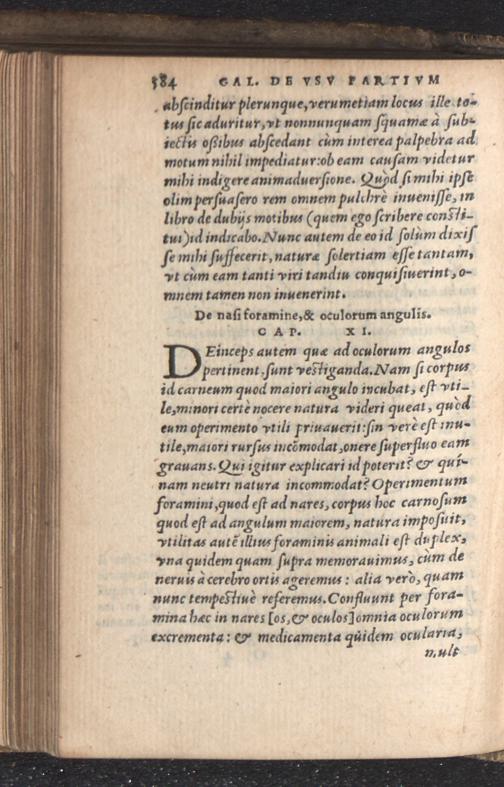 584 GAL. DE VSV PARTIVM
abscinditur plerunque, verumetiam locus ille to-
tus sic aduritur, vt nonnunquam squamæ à sub-
iectis oßibus abscedant cùm interea palpebra ad
motum nihil impediatur: ob eam causam videtur
mihi indigere animaduersione. Quòd si mihi ipse
olim persuasero rem omnem pulchrè inuenisse, in
libro de dubijs motibus (quem ego scribere consti-
tui) id indicabo. Nunc autem de eo id solùm dixis
se mihi suffecerit, naturæ solertiam esse tantam,
vt cùm eam tanti viri tandiu conquisiuerint, o-
mnem tamen non inuenerint.
De nasi foramine, & oculorum angulis.
CAP. XI.
DEinceps autem quæ ad oculorum angulos
pertinent, sunt vestiganda. Nam si corpus
id carneum quod maiori angulo incubat, est vti-
le, minori certè nocere natura videri queat, quòd
eum operimento vtili priuauerit: sin verè est inu-
tile, maiori rursus incõmodat, onere superfluo eam
grauans. Qui igitur explicari id poterit? & quî-
nam neutri natura incommodat? Operimentum
foramini, quod est ad nares, corpus hoc carnosum
quod est ad angulum maiorem, natura imposuit,
vtilitas autẽ illius foraminis animali est duplex,
vna quidem quam supra memorauimus, cùm de
neruis à cerebro ortis ageremus: alia verò, quam
nunc tempestiuè referemus. Confluunt per fora-
mina hæc in nares [os, & oculos] omnia oculorum
excrementa: & medicamenta quidem ocularia,